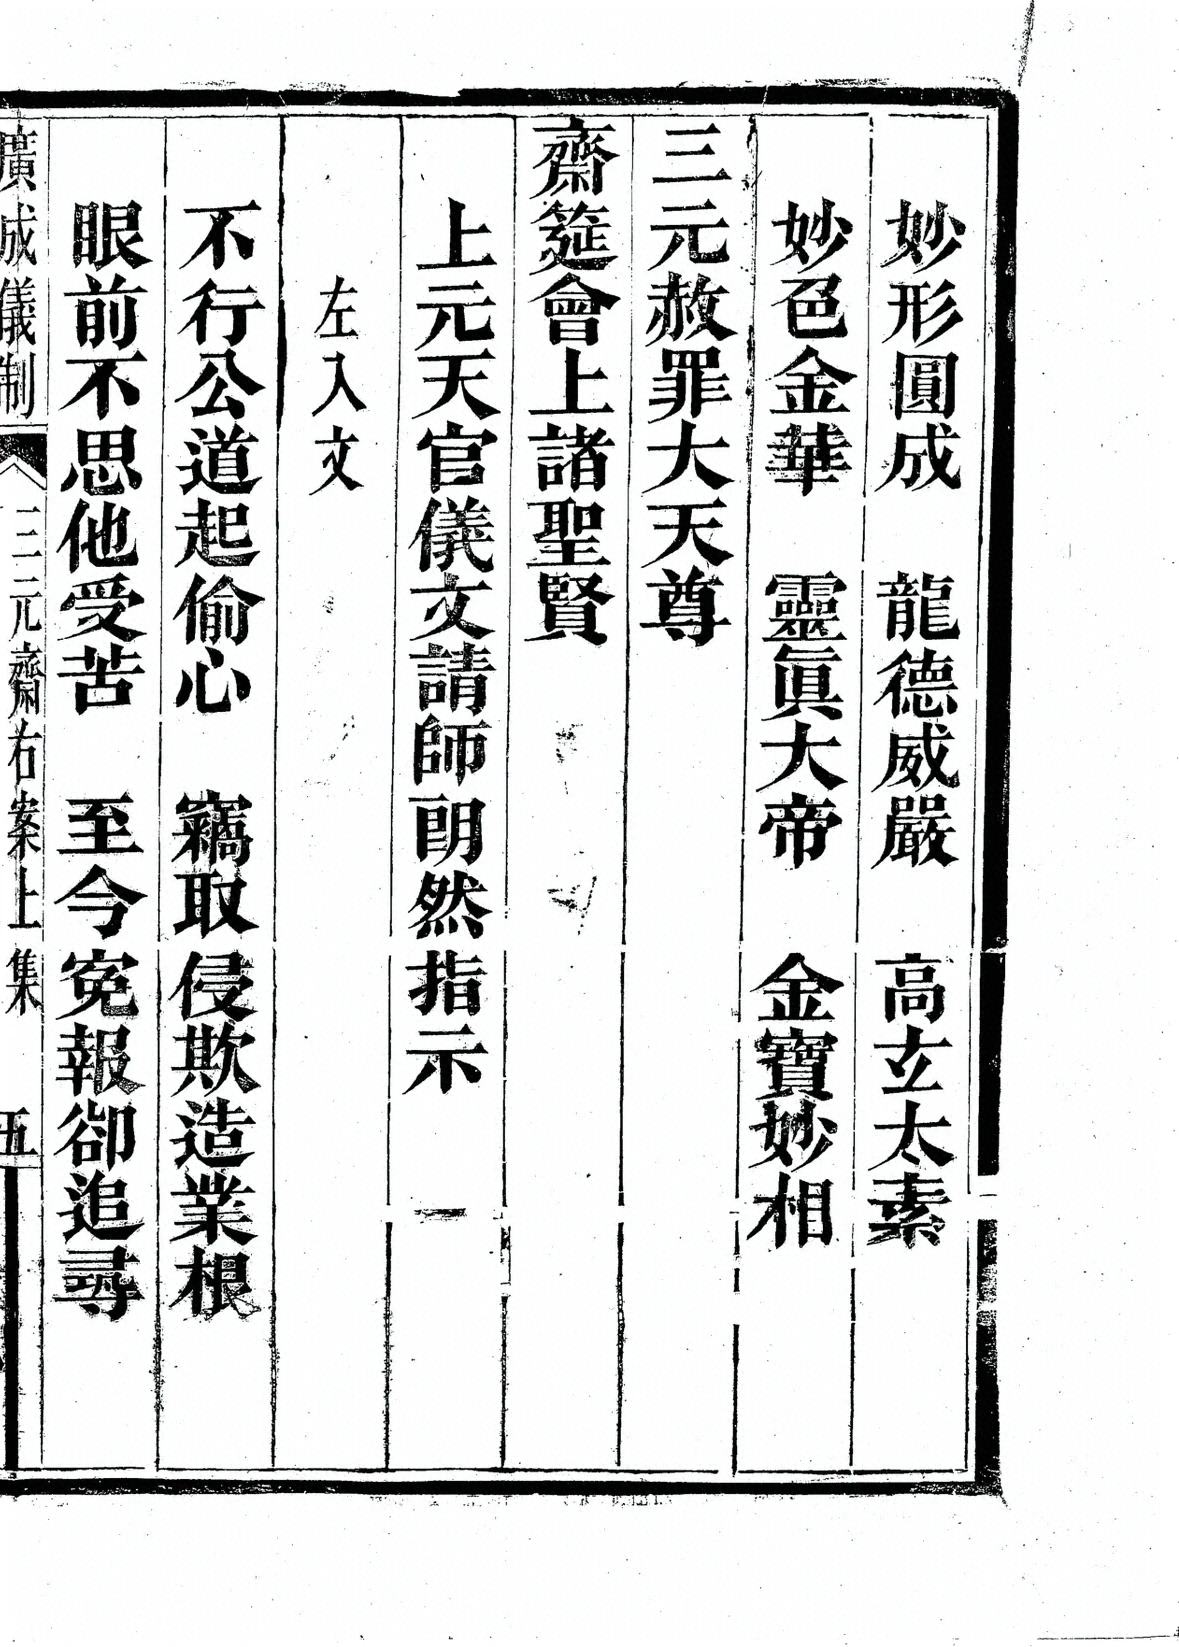 妙形圓成　龍德威嚴　高立太素
妙色金華　靈眞大帝　金寶妙相
三元赦罪大天尊
齋筵會上諸聖賢
上元天官儀文請師朗然指示
左入文
不行公道起偷心　竊取侵欺造業根
眼前不思他受苦　至今寃報卻追尋
廣成儀制　三元齋右案上集　五